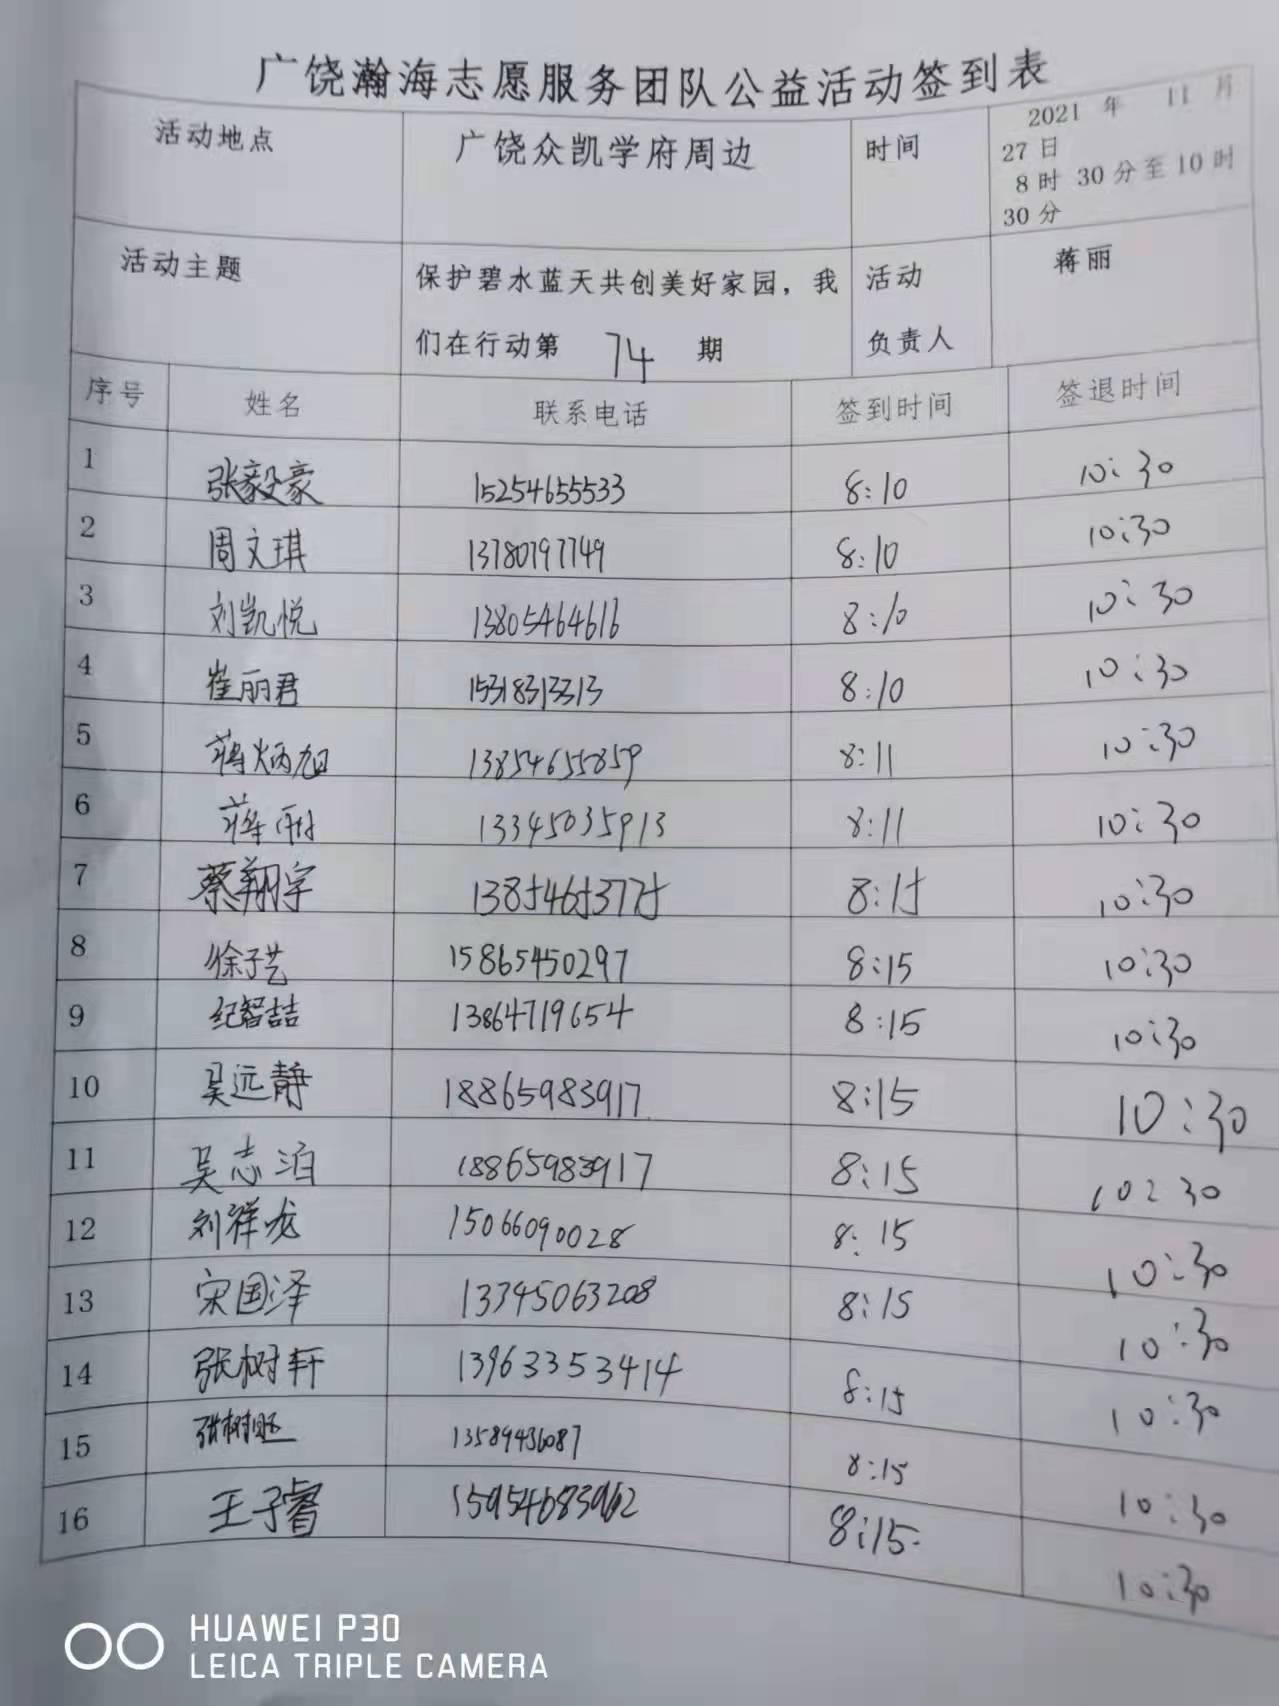 广饶瀚海志愿服务团队公益活动签到表
活动地点 广饶众凯学府周边 时间 2021 年 11 月
27 日
8 时 30 分至 10 时
30 分
活动主题 保护碧水蓝天共创美好家园，我 活动 蒋丽
们在行动第 74 期 负责人
序号 姓名 联系电话 签到时间 签退时间
1 张毅豪 15254655533 8:10 10:30
2 周文琪 13780797749 8:10 10:30
3 刘凯悦 13805464616 8:10 10:30
4 崔丽君 15318313313 8:10 10:30
5 蒋炳旭 13854655859 8:11 10:30
6 蒋丽 13345035913 8:11 10:30
7 蔡翔宇 13854653775 8:15 10:30
8 徐子艺 15865450297 8:15 10:30
9 纪智喆 13864719654 8:15 10:30
10 吴远静 18865983917 8:15 10:30
11 吴志泊 18865983917 8:15 10:30
12 刘祥龙 15066090028 8:15 10:30
13 宋国泽 13345063208 8:15 10:30
14 张树轩 13963353414 8:15 10:30
15 13589436087 8:15 10:30
16 王子睿 15954683962 8:15 10:30
HUAWEI P30
LEICA TRIPLE CAMERA